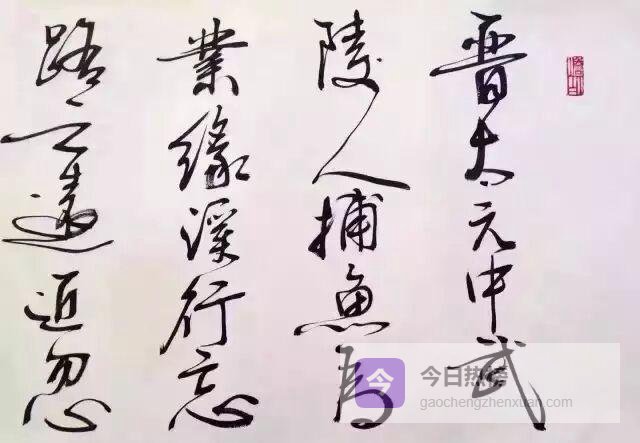 晋太元中武
陵人捕鱼为
業缘溪行忘
路之遠近忽
今日热榜
gaochengzhenxuan.com